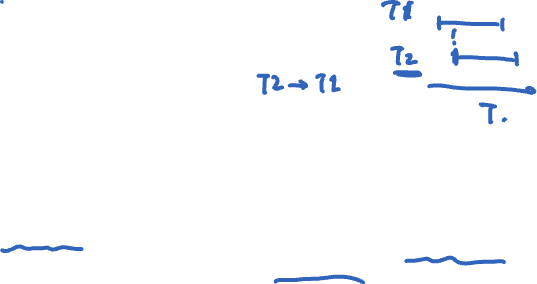 T1
T2
T2 → T1
T.